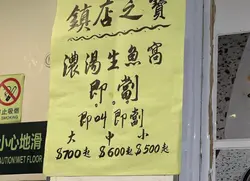 鎮店之寶
濃湯生魚窩
即劏
即叫即劏
大 中 小
$700起 $600起 $500起
禁止吸煙
小心地滑
CAUTION WET FLOOR